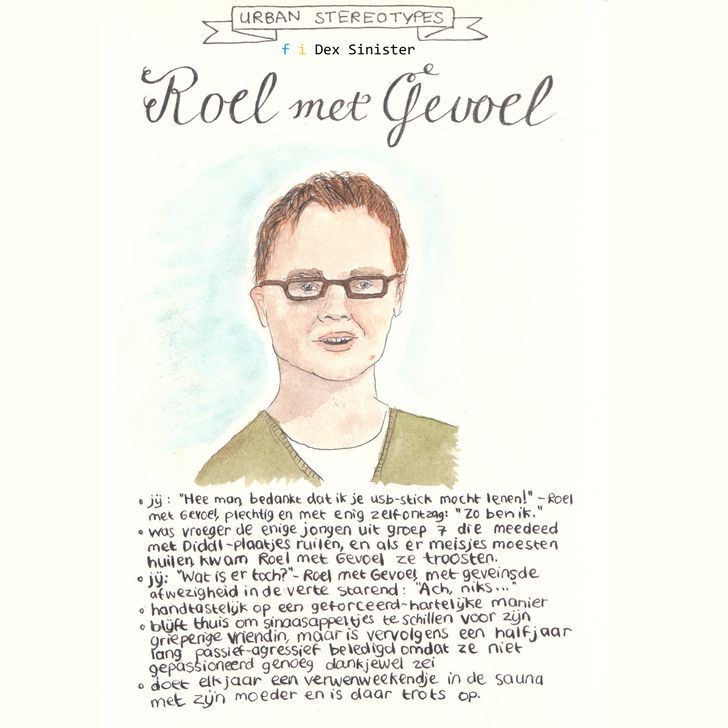 URBAN STEREOTYPES
f i Dex Sinister
Roel met Gevoel
• jij: "Hee man, bedankt dat ik je usb-stick mocht lenen!" - Roel
met Gevoel, plechtig en met enig zelfontzag: "Zo ben ik."
• was vroeger de enige jongen uit groep 7 die meedeed
met Diddl-plaatjes ruilen, en als er meisjes moesten
huilen kwam Roel met Gevoel ze troosten.
• jij: "Wat is er toch?" - Roel met Gevoel, met geveinsde
afwezigheid in de verte starend: "Ach, niks..."
• handtastelijk op een geforceerd-hartelijke manier
• blijft thuis om sinaasappeltjes te schillen voor zijn
grieperige vriendin, maar is vervolgens een halfjaar
lang passief-agressief beledigd omdat ze niet
gepassioneerd genoeg dankjewel zei
• doet elk jaar een verwenweekendje in de sauna
met zijn moeder en is daar trots op.